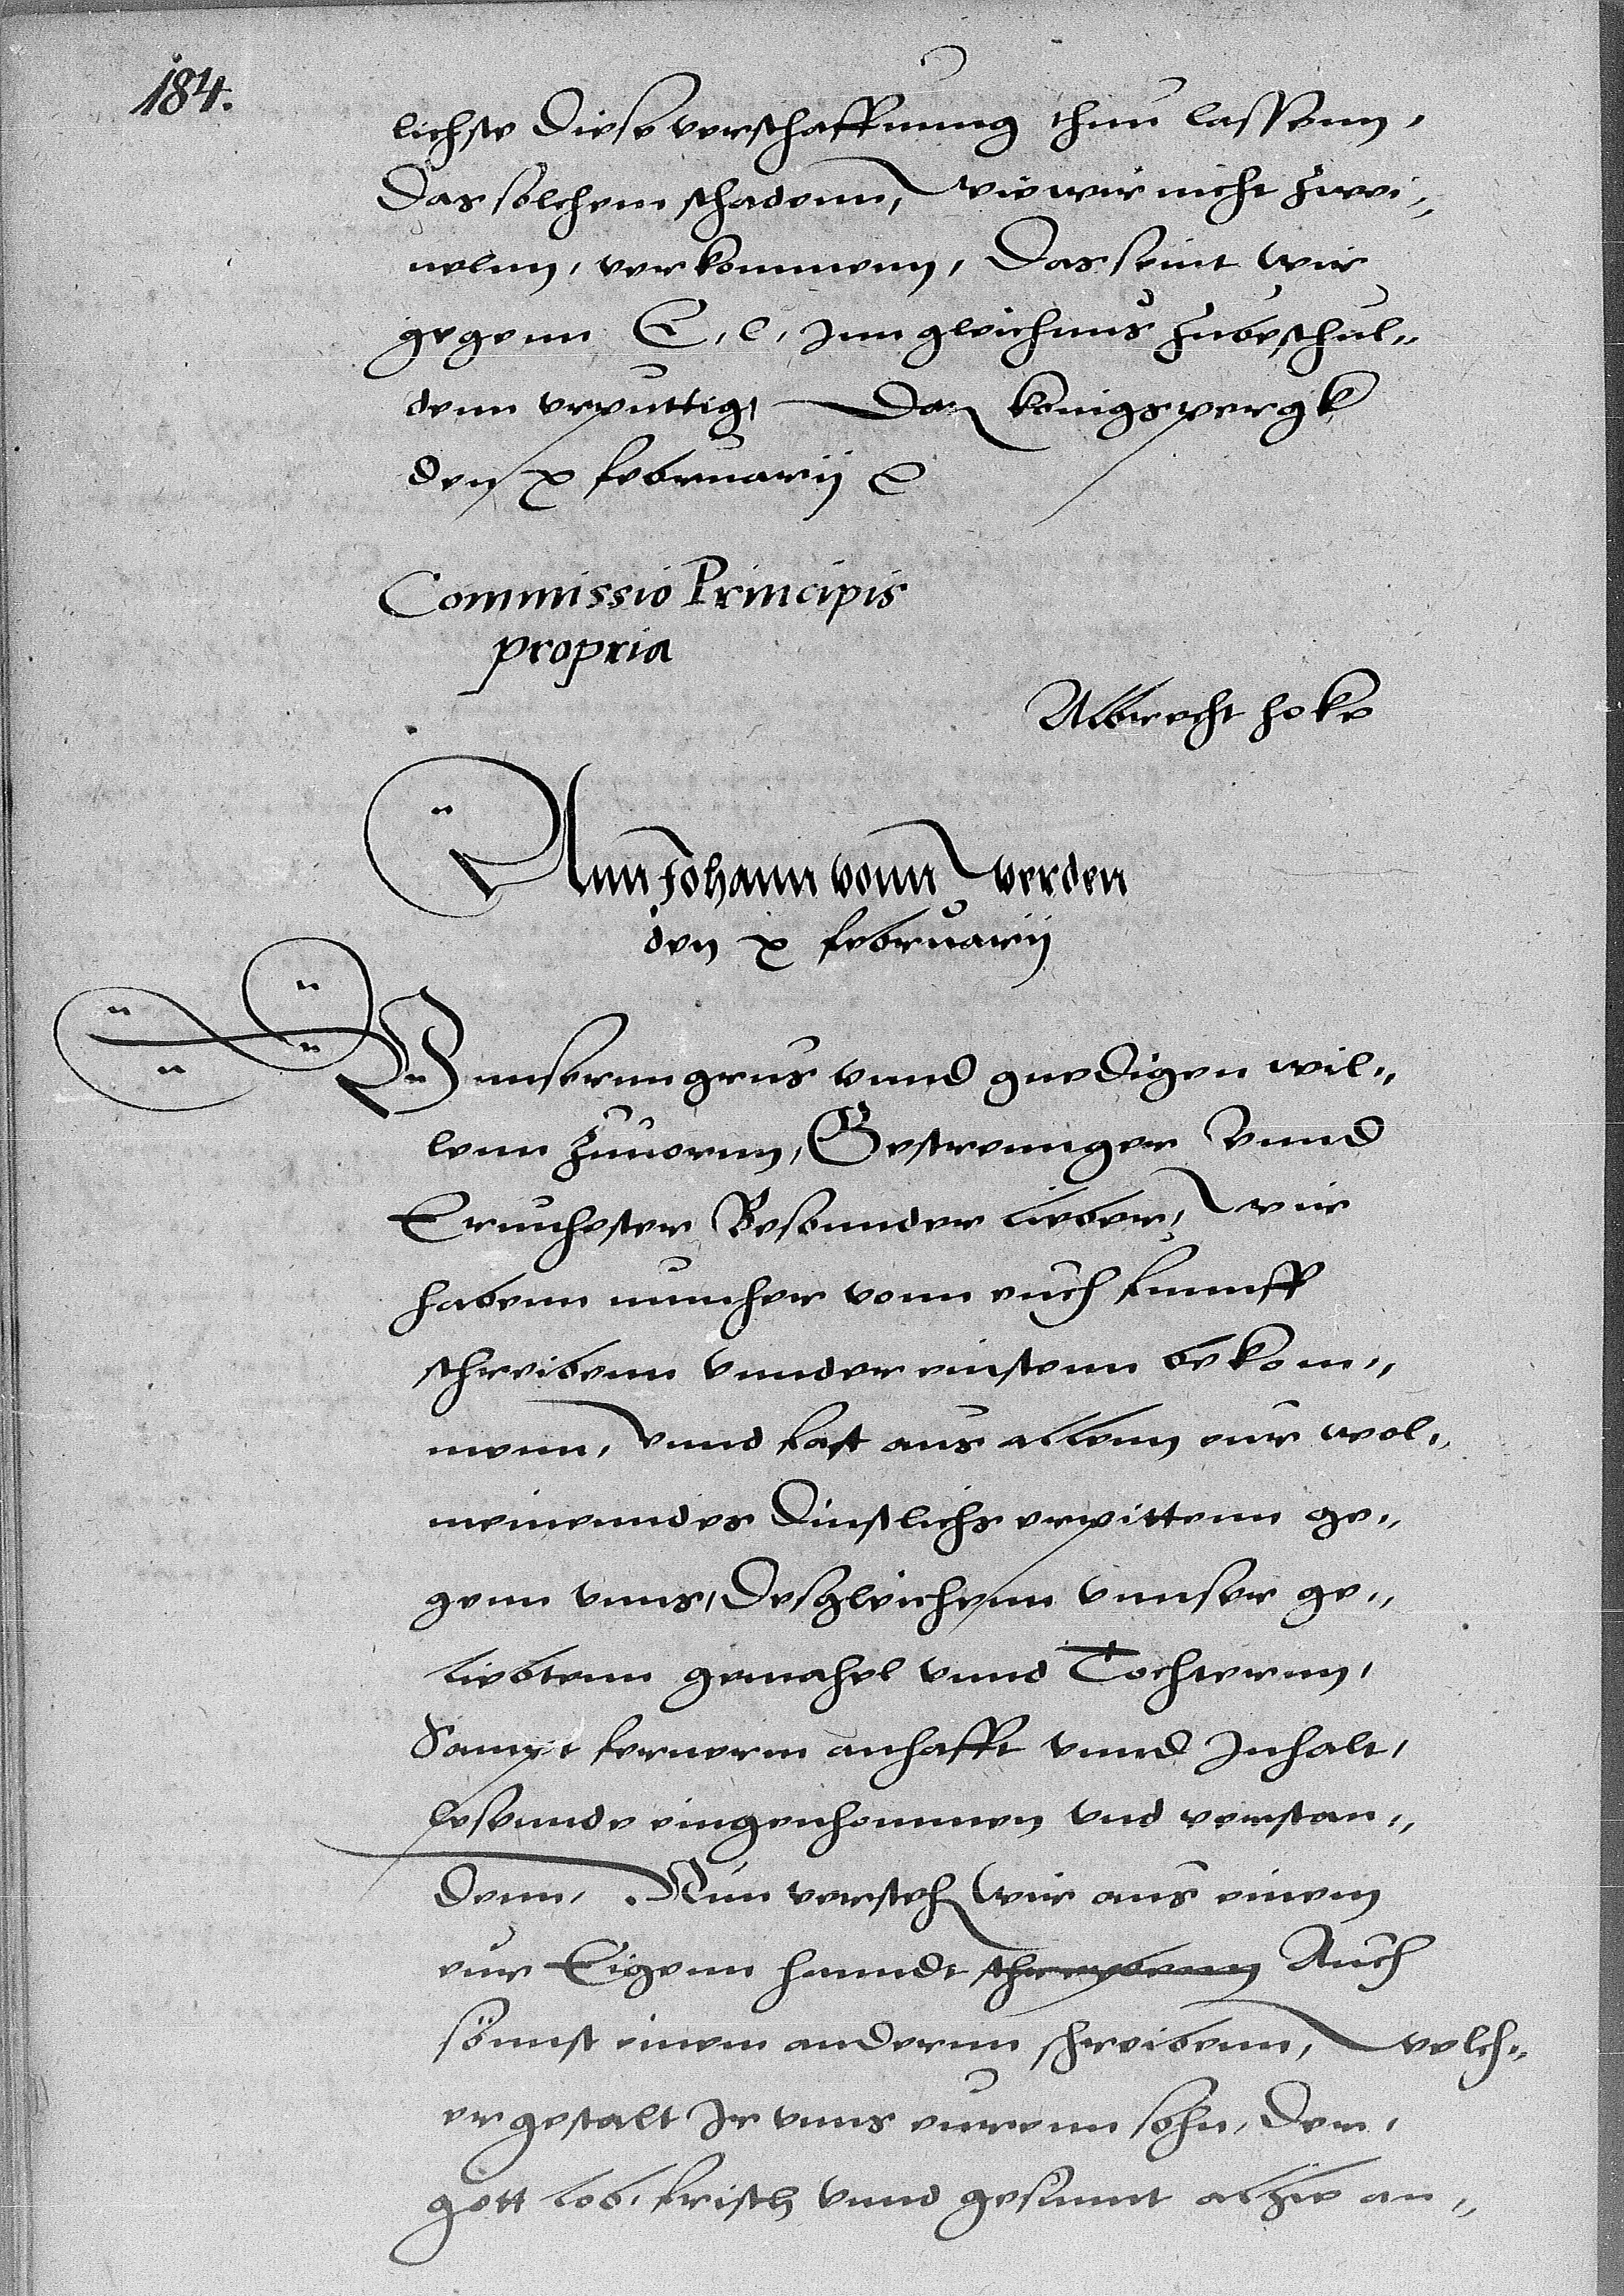 184.
lichste diese verschaffung thun lassenn,
Das solchem schadenn, wie wir nicht zwei„
uelnn, verkommenn, Das seint wir
gegenn E, l, Inn gleichnus zubeschul„
denn erputtig, Daz konigspergk
den x februarij
Commissio Principis
propria
Albrecht
Ann Johann vonn werden
den x februarij
unsernn grus vnnd gnedigen wil„
lenn zuuornn, Gestrennger Vnnd
Ernuhester Besonnder lieber, wir
habenn nunher vonn euch funnff
schreibenn vnnder einstenn bekom„
menn, vnnd fast aus allenn eur wol„
meinenndes dinstlichs erpittenn ge„
genn vnns, Desgleichenn vnnser ge„
liebtenn gemahel vnnd Tochternn,
Sampt fernerm anhafft vnnd Inhalt,
lesennde eingenhommen vnd verstan„
denn, Nun versteh wir aus einem
eur Eigenn hanndt schreybenn Auch
sonnst einem andernn schreibenn, welch„
er gestalt Ir vnns eurenn sohn, Der,
gott lob, frisch vnnd gesunnt alhie an„